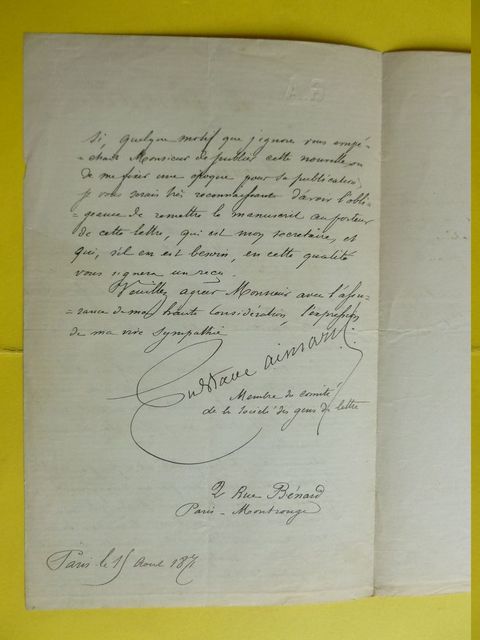 Si quelque motif que j'ignore vous empê-
-chait Monsieur de publier cette nouvelle ou
de me fixer une époque pour sa publication,
je vous serais très reconnaissant d'avoir l'obli-
-geance de remettre le manuscrit au porteur
de cette lettre, qui est mon secrétaire, et
qui, s'il en est besoin, en cette qualité
vous signera un reçu.
Veuillez agréer Monsieur avec l'assu-
-rance de ma haute considération, l'expression
de ma vive sympathie
Gustave aimard.
Membre du comité
de la Société des gens de lettre
2 Rue Bénard
Paris - Montrouge
Paris le 15 Aout